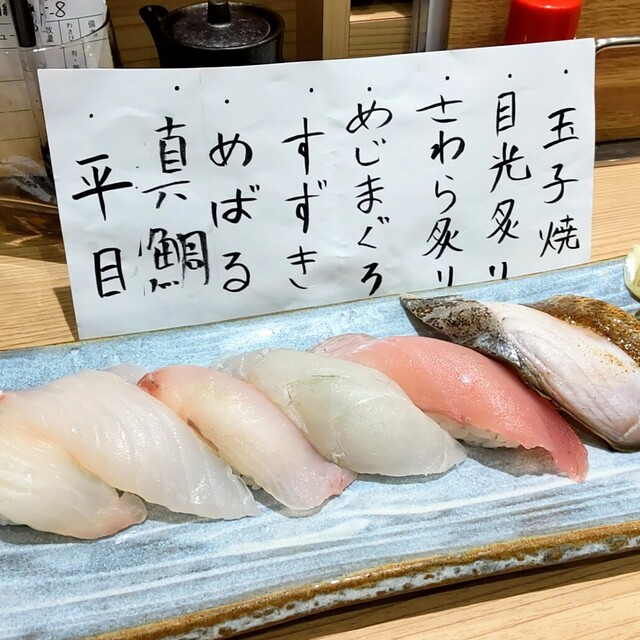 ・玉子焼
・目光炙り
・さわら炙り
・めじまぐろ
・すずき
・めばる
・真鯛
・平目